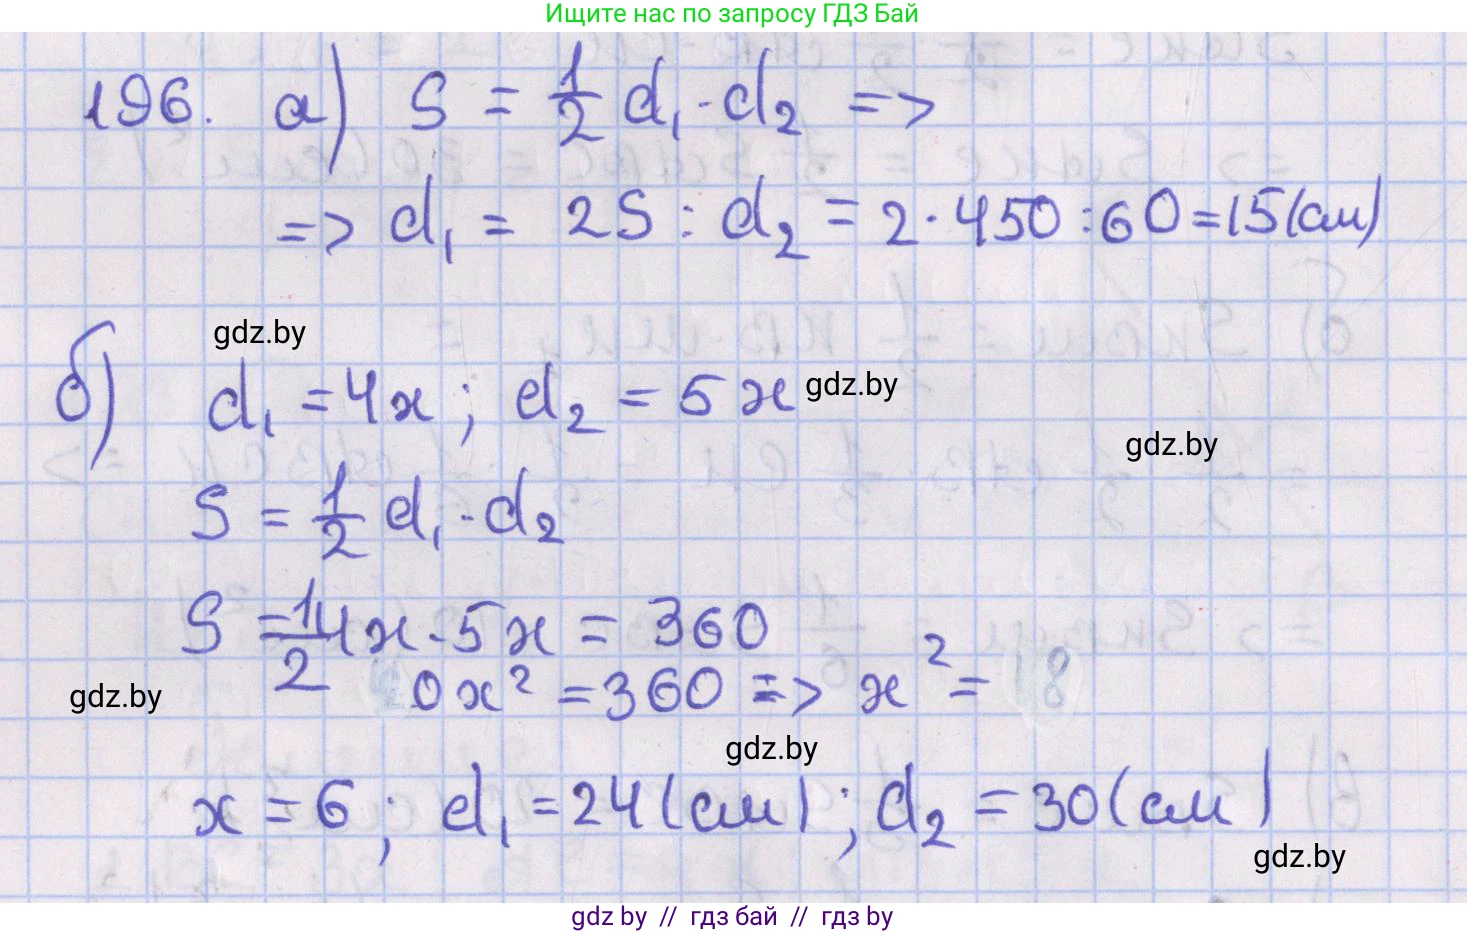 Ищите нас по запросу ГДЗ Бай
196. а) S = 1/2 d₁ · d₂ =>
=> d₁ = 2S : d₂ = 2 · 450 : 60 = 15 (см)
gdz.by
б) d₁ = 4x ; d₂ = 5x
gdz.by
gdz.by
S = 1/2 d₁ · d₂
S = 1/2 4x · 5x = 360
gdz.by
0x² = 360 => x² =
gdz.by
x = 6 ; d₁ = 24 (см) ; d₂ = 30 (см)
gdz.by
gdz by // гдз бай // гдз by